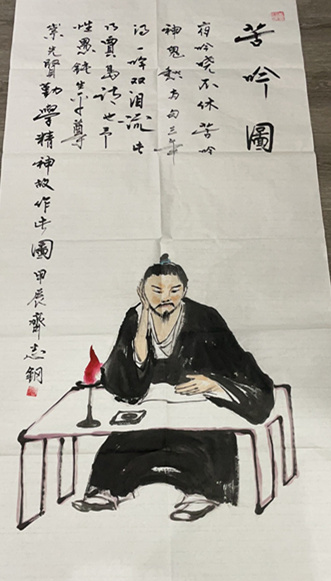 苦吟圖
夜吟曉不休苦吟
神鬼愁 两句三年
得一吟双泪流此
乃賈島詩也予
性愚鈍生平尊
崇先賢勤學精神故作此圖 甲辰 齊志鋼